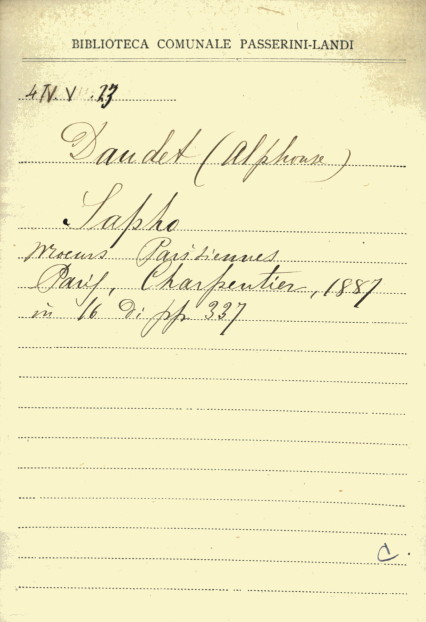 BIBLIOTECA COMUNALE PASSERINI-LANDI
4 IV. V .23
Daudet (Alphonse)
Sapho
Moeurs Parisiennes
Paris, Charpentier, 1887
in 16 di pp 337
C.